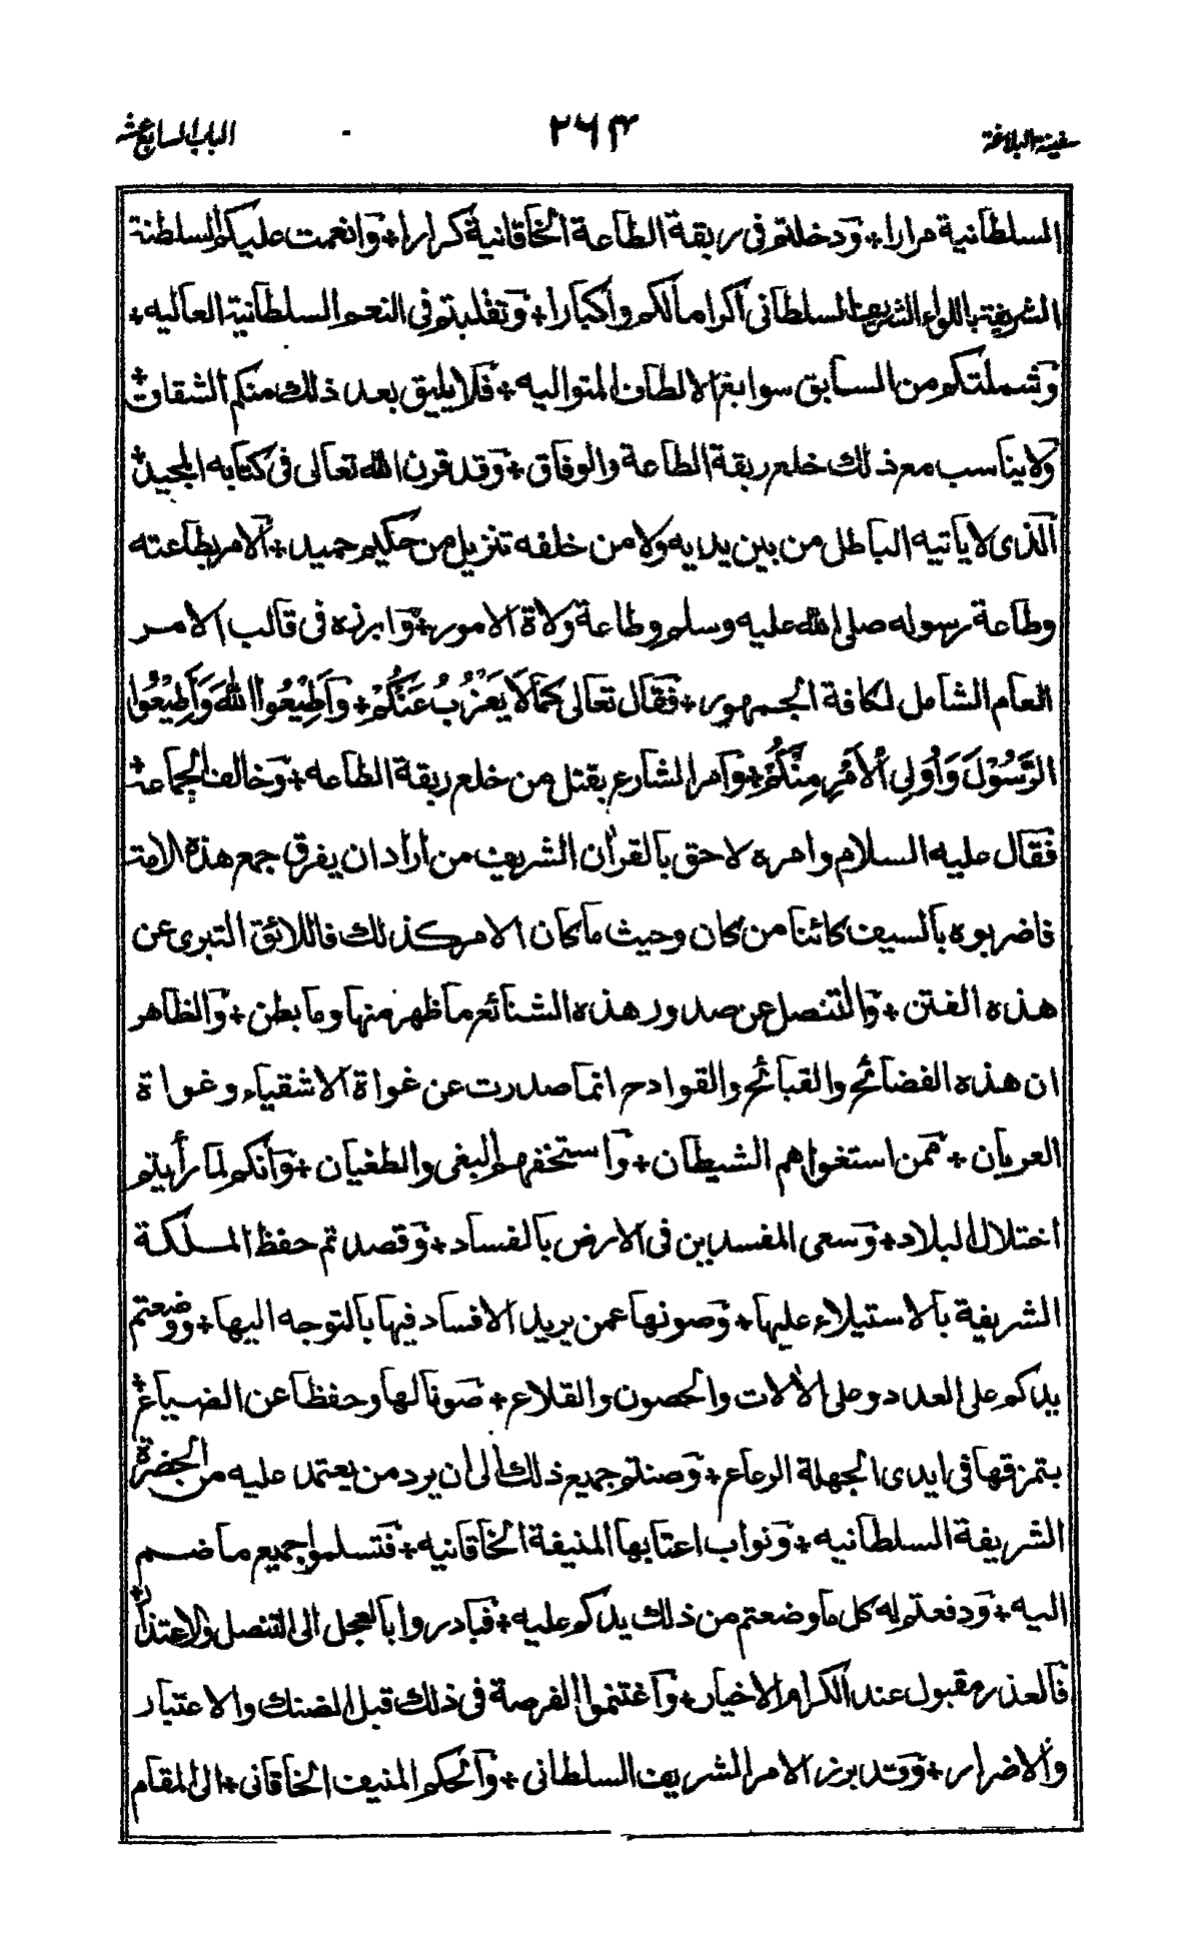 سفينة البلاغة ٢٦٣ الباب السابع عشر
السلطانية مرارا + ودخلتم فى ربقة الطاعة الخاقانية كرارا + وانعمت عليكم السلطنة
الشريفة باللواء الشريف السلطانى اكراما لكم واكبارا + وتقلبتم فى النعم السلطانية العاليه +
وشملتكم من السابق سوابغ الالطاف المتواليه + فلا يليق بعد ذلك منكم الشقاق +
ولا يناسب مع ذلك خلع ربقة الطاعة والوفاق + وقد قرن الله تعالى فى كتابه المجيد +
الذى لا ياتيه الباطل من بين يديه ولا من خلفه تنزيل من حكيم حميد + الامر بطاعته
وطاعة رسوله صلى الله عليه وسلم وطاعة ولاة الامور + وابرزه فى قالب الامر
العام الشامل لكافة الجمهور + فقال تعالى كَمَا لَا يَعْزُبُ عَنْكُمْ + وَاَطِيْعُوا اللهَ وَاَطِيْعُوا
الرَّسُوْلَ وَاُولِى الْاَمْرِ مِنْكُمْ + وامر الشارع بقتل من خلع ربقة الطاعه + وخالف الجماعة +
فقال عليه السلام وامره لاحق بالقرأن الشريف من أراد ان يفرق جمع هذه الامة
فاضربوه بالسيف كائنا من كان وحيث ما كان الامر كذلك فاللائق التبرى عن
هذه الفتن + والتنصل عن صدور هذه الشنائع ما ظهر منها وما بطن + والظاهر
ان هذه الفضائح والقبائح والقوادح انما صدرت عن غواة الاشقياء وغواة
العربان + ممن استغواهم الشيطان + واستخفهم البغى والطغيان + وانكم لما رأيتم
اختلال البلاد + وسعى المفسدين فى الارض بالفساد + وقصدتم حفظ المملكة
الشريفة بالاستيلاء عليها + وصونها عمن يريد الافساد فيها بالتوجه اليها + ووضعتم
يدكم على العدد وعلى الألات والحصون والقلاع + صونا لها وحفظا عن الضياع +
بتمزقها فى ايدى الجهلة الرعاع + وصنتم جميع ذلك الى ان يرد من يعتمد عليه من الحضرة
الشريفة السلطانيه + ونواب اعتابها المنيفة الخاقانيه + فتسلموا جميع ما ضم
اليه + ودفعتم له كل ما وضعتم من ذلك يدكم عليه + فبادروا بالعجل الى التنصل والاعتذار +
فالعذر مقبول عند الكرام الاخيار + واغتنموا الفرصة فى ذلك قبل الضنك والاعتبار
والاضرار + وقد برز الامر الشريف السلطانى + والحكم المنيف الخاقانى + الى المقام